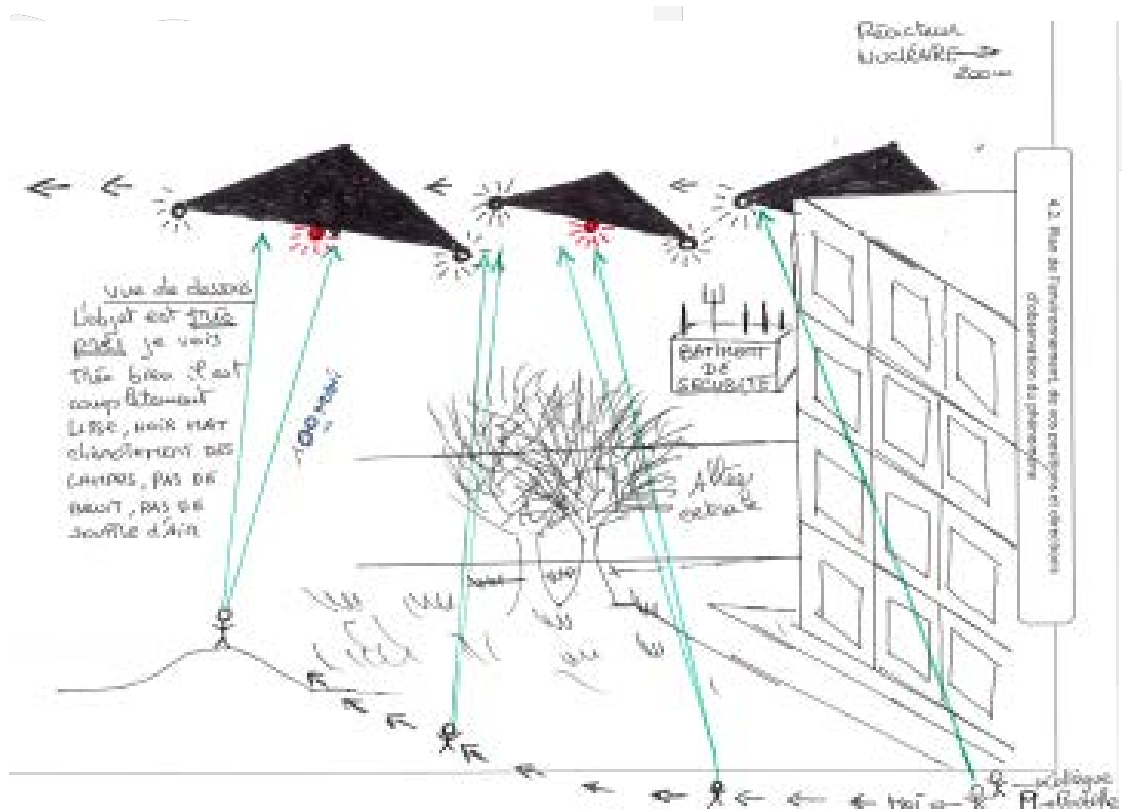 Réacteur
NUCLÉAIRE
200m
4.2. Plan de l'environnement, de vos positions et directions
d'observation du phénomène
vue de dessous
L'objet est très
près je vois
très bien il est
complètement
LISSE, NOIR MAT
DES
LAMPES, PAS DE
BRUIT, PAS DE
souffle d'Air
BATIMENT
DE
SECURITE
Allée
centrale
Moi
collègue